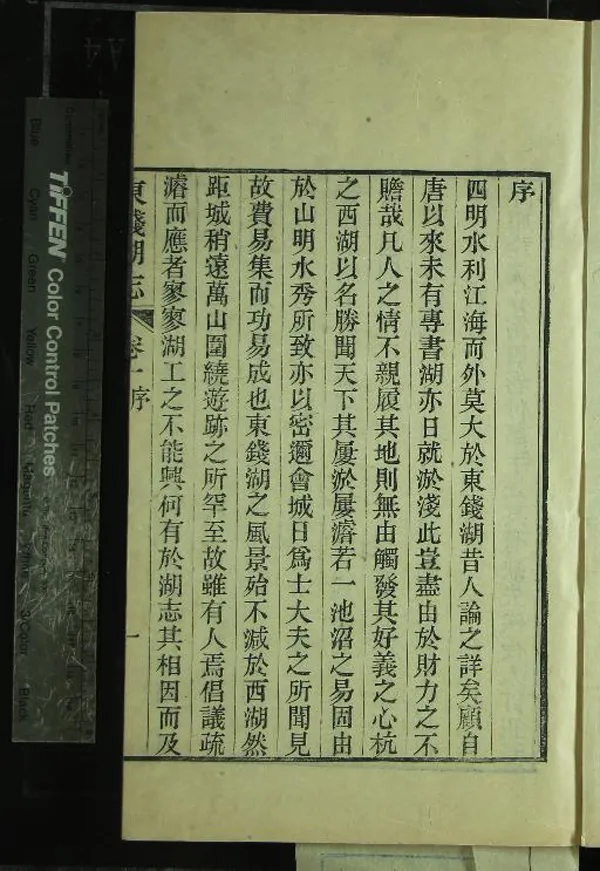 序
四明水利江海而外莫大於東錢湖昔人論之詳矣顧自
唐以來未有專書湖亦日就淤淺此豈盡由於財力之不
贍哉凡人之情不親履其地則無由觸發其好義之心杭
之西湖以名勝聞天下其屢淤屢濬若一池沼之易固由
於山明水秀所致亦以密邇會城日爲士大夫之所聞見
故費易集而功易成也東錢湖之風景殆不減於西湖然
距城稍遠萬山圍繞遊跡之所罕至故雖有人焉倡議疏
濬而應者寥寥湖工之不能興何有於湖志其相因而及
東錢湖志 卷一序 一
TIFFEN Color Control Patches
Blue Cyan Green Yellow Red Magenta White 3/Color Black